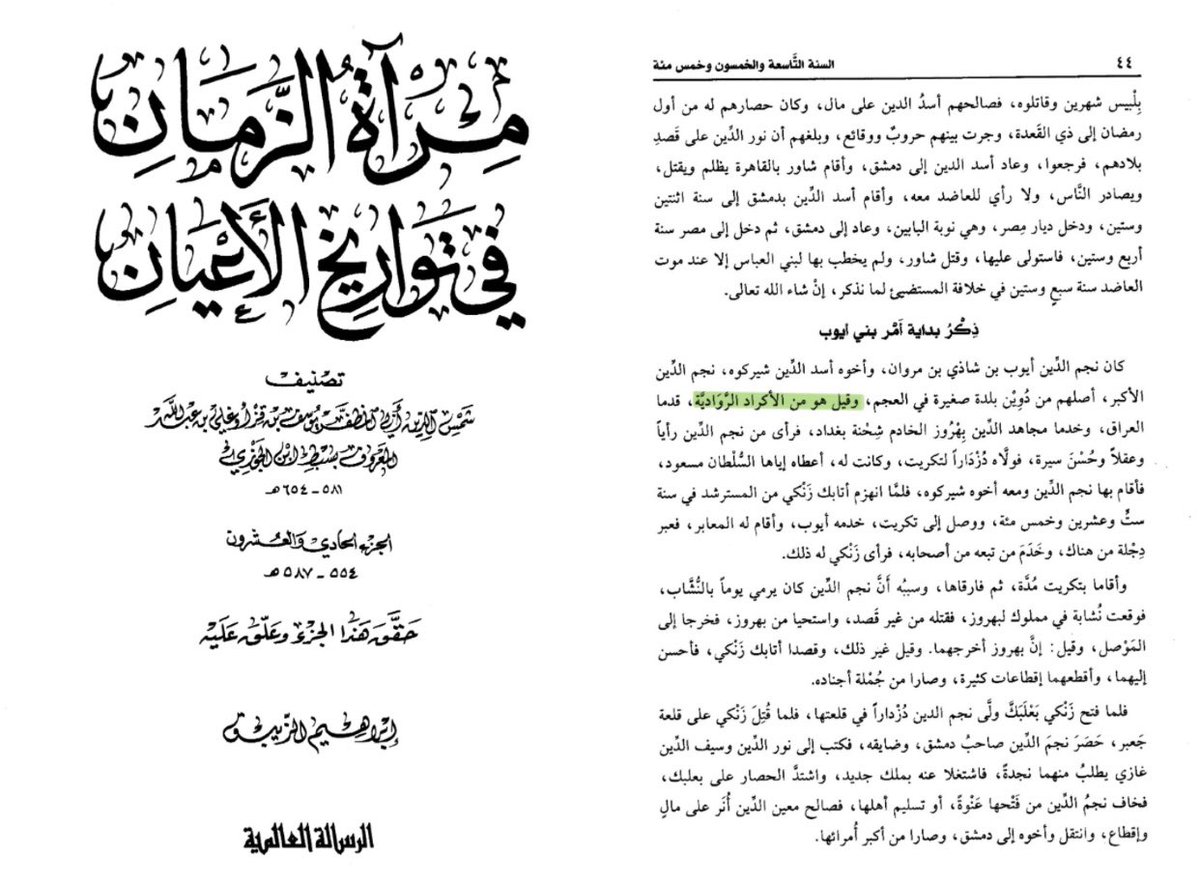 مِرْآةُ الزَّمَانِ
فِي تَوَارِيخِ الأَعْيَانِ
تصنيف
شمس الدين أبي المظفر يوسف بن قزأوغلي بن عبد الله
المعروف بسبط ابن الجوزي
٥٨١ - ٦٥٤ هـ
الجزء الحادي والعشرون
٥٥٤ - ٥٨٧ هـ
حقق هذا الجزء وعلق عليه
إبراهيم الزيبق
الرسالة العالمية
٤٤
السنة التَّاسعة والخمسون وخمس مئة
بِلْبيس شهرين وقاتلوه، فصالحهم أسدُ الدين على مال، وكان حصارهم له من أول
رمضان إلى ذي القَعدة، وجرت بينهم حروبٌ ووقائع، وبلغهم أن نور الدِّين على قَصدِ
بلادهم، فرجعوا، وعاد أسد الدين إلى دمشق، وأقام شاور بالقاهرة يظلم ويقتل،
ويصادر النَّاس، ولا رأي للعاضد معه، وأقام أسد الدِّين بدمشق إلى سنة اثنتين
وستين، ودخل ديار مِصر، وهي نوبة البابين، وعاد إلى دمشق، ثم دخل إلى مصر سنة
أربع وستين، فاستولى عليها، وقتل شاور، ولم يخطب بها لبني العباس إلا عند موت
العاضد سنة سبعٍ وستين في خلافة المستضيئ لما نذكر، إنْ شاء الله تعالى.
ذِكْرُ بداية أمْر بني أيوب
كان نجم الدِّين أيوب بن شاذي بن مروان، وأخوه أسد الدِّين شيركوه، نجم الدِّين
الأكبر، أصلهم من دُوِيْن بلدة صغيرة في العجم، وقيل هو من الأكراد الرَّوَاديَّة، قدما
العراق، وخدما مجاهد الدِّين بِهْرُوز الخادم شِحْنة بغداد، فرأى من نجم الدِّين رأياً
وعقلاً وحُسْنَ سيرة، فولَّاه دُزْدَاراً لتكريت، وكانت له، أعطاه إياها السُّلْطان مسعود،
فأقام بها نجم الدِّين ومعه أخوه شيركوه، فلمَّا انهزم أتابك زَنْكي من المسترشد في سنة
ستٍّ وعشرين وخمس مئة، ووصل إلى تكريت، خدمه أيوب، وأقام له المعابر، فعبر
دِجْلة من هناك، وخَدَمَ من تبعه من أصحابه، فرأى زَنْكي له ذلك.
وأقاما بتكريت مُدَّة، ثم فارقاها، وسببُه أَنَّ نجم الدِّين كان يرمي يوماً بالنُّشَّاب،
فوقعت نُشابة في مملوك لبهروز، فقتله من غير قَصد، واستحيا من بهروز، فخرجا إلى
المَوْصل، وقيل: إنَّ بهروز أخرجهما. وقيل غير ذلك، وقصدا أتابك زَنْكي، فأحسن
إليهما، وأقطعهما إقطاعات كثيرة، وصارا من جُمْلة أجناده.
فلما فتح زَنْكي بَعْلَبَكَّ ولَّى نجم الدين دُزْداراً في قلعتها، فلما قُتِلَ زَنْكي على قلعة
جَعبر، حَصَرَ نجمَ الدِّين صاحبُ دمشق، وضايقه، فكتب إلى نور الدِّين وسيف الدِّين
غازي يطلبُ منهما نجدةً، فاشتغلا عنه بملك جديد، واشتدَّ الحصار على بعلبك،
فخاف نجمُ الدِّين من فَتْحها عَنْوةً، أو تسليم أهلها، فصالح معين الدِّين أُنَر على مالٍ
وإقطاع، وانتقل وأخوه إلى دمشق، وصارا من أكبر أُمرائها.